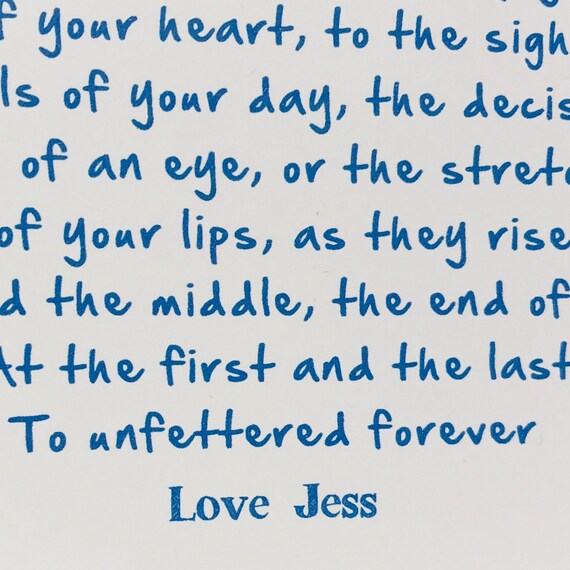 of your heart, to the sigh
ls of your day, the decis
of an eye, or the stretc
of your lips, as they rise
d the middle, the end of
At the first and the last
To unfettered forever
Love Jess